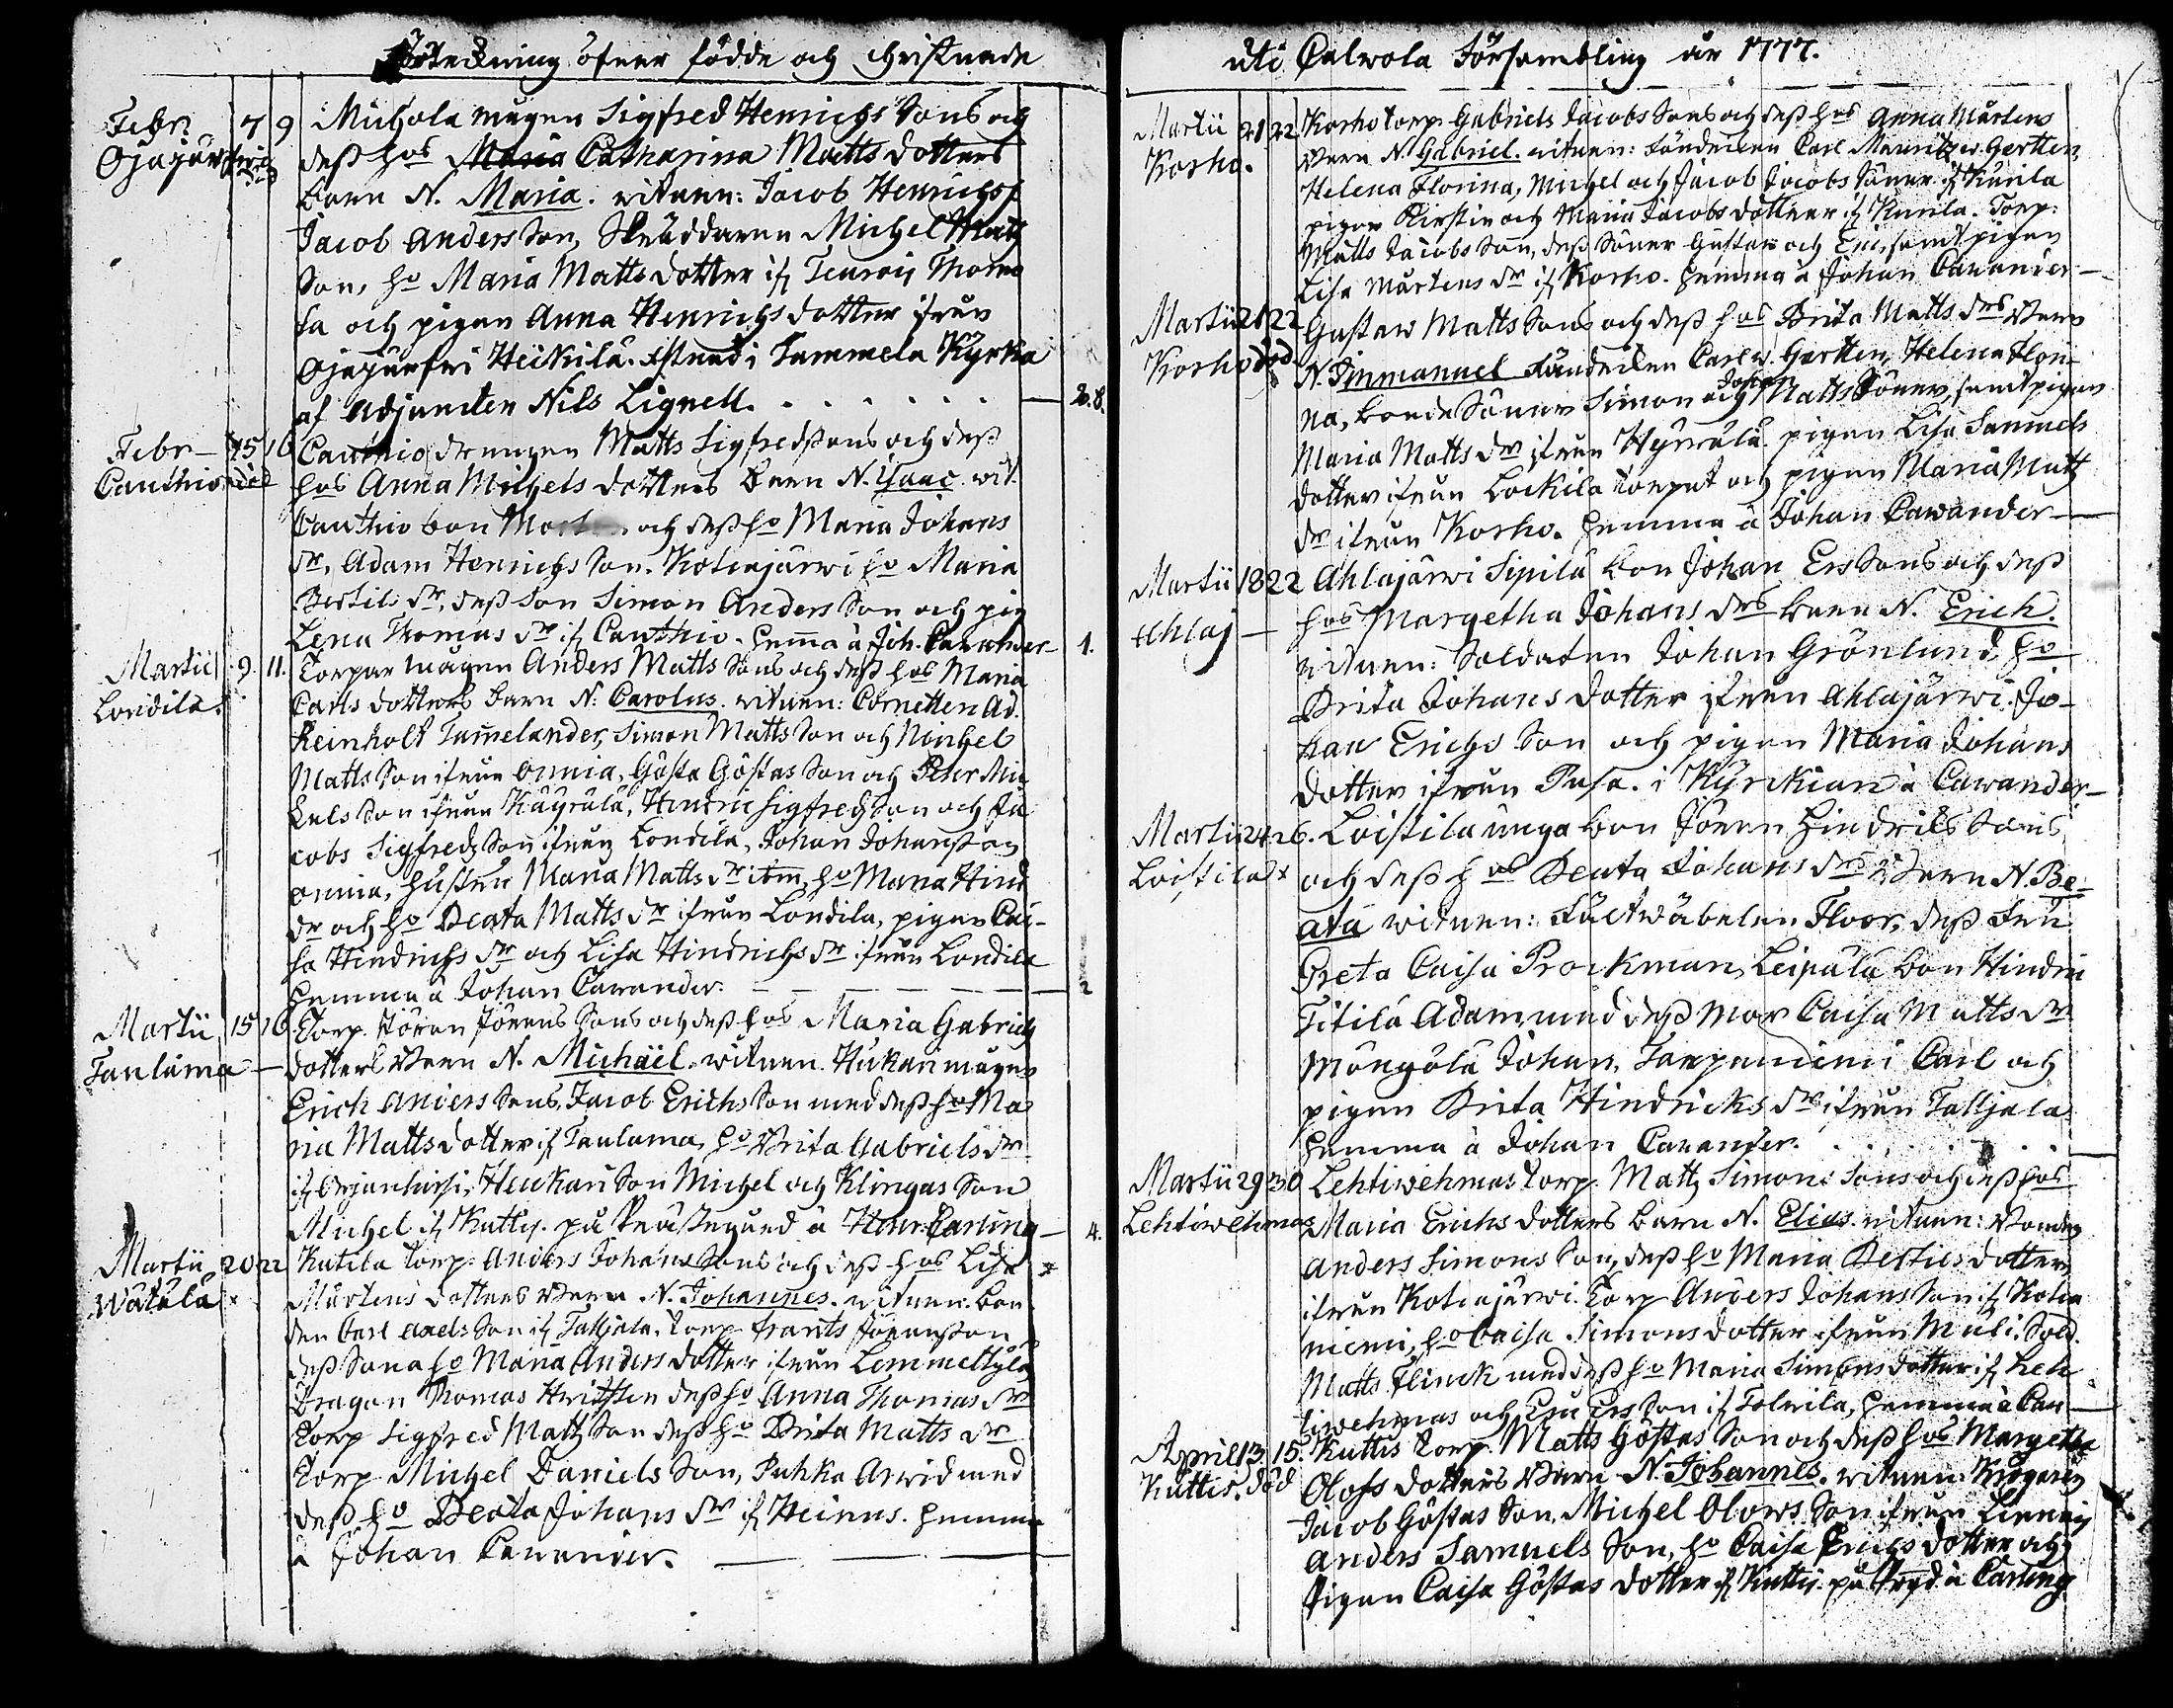 Förtekning öfver födde och Christnade
Febr. 7 9 Michola mågen Sigfred Henrichs Sons och
Ojajärf deß h:os Catharina Matts dotters
barn N. Maria. vitnen: Jacob Henrichs
Jacob Anders Son, Skräddaren Michel Matts
Son, h:o Maria Matts dotter if
och pigan Anna Henrichs dotter ifrån
Ojajärfwi Heikilä. i Tammela Kyrka
af Adjuncten Nils Lignell. 2. 8.
Febr 15 16 Cauthio drengen Matts Sigfredssons och deß
Cauthio död h:os Anna Michels dotters barn N. Isaac. vit.
Cauthio bon och deß h:o Maria Johans
dr, Adam Henrichs Son. Kotiajärwi h:o Maria
Bertils dr, deß Son Simon Anders Son och pig
Lena Thomas dr if Cauthio. hema a Joh. Cawander 1.
Martii 9. 11. Torpar mågen Anders Matts Sons och deß h:os Maria
Londila. Carls dotters barn N. Carolus. vitnen: Cornetten Ad.
Reinholt Tamelander, Simon Matts Son och Michel
Matts Son ifrån Onnia, Gösta Göstas Son och Petr Mic
kels Son ifrån Käyrälä, Henric Sigfreds Son och Ja
cobs Sigfreds Son ifrån Londila, Johan Johansson
Onnia, hustru Maria Matts dr h:o Maria Hind
dr och h:o Beata Matts dr ifrån Londila, pigan Cai-
sa Hindrichs dr och Lisa Hindrichs dr ifrån Londila
hemma a Johan Cawander. 2
Martii 15 16 Torp. Jöran Jörans Sons och deß h:os Maria Gabriels
Taulama dotters barn N. Michäel. vitnen. Hukari mågen
Erich Anders Sons, Jacob Erichs Son med deß h:o Ma
ria Matts dotter if Taulama, h:o Brita Gabriels dr
if Orjanhirsi, Heukari Son Michel och Klingas Son
Michel if Kuttis. på Prästegård a Henr. Carling 4.
Martii 20 22 Kutila torp. Anders Johans Sons och deß h:os Lisa
Watula Mårtens dotters barn N. Johannes. vitnen. bon
den Carl Axels Son if Taljala. torp. frants Jöransson
deß h:o Maria Anders dotter ifrån Lemmettylä
Dragon Thomas deß h:o Anna Thomas dr
torp Sigfred Matts Son deß h:o Brita Matts dr
torp Michel Daniels Son, Puhka Arvid med
deß h:o Beata Johans dr if Heinus. hemma
a Johan Cawander.
uti Calwola Församling år 1777.
Martii 21 22 Korho torp. Gabriels Jacobs Sons och deß h:os Anna Mårtens
Korho. barn N. Gabriel. vitnen: Fändricken Carl Maurits v. Gertten,
Helena Florina, Michel och Jacob Jacobs Söner if Kurila
pigor Kirstin och Maria Jacobs dotter if Kurila. Torp:
Matts Jacobs Son, deß Söner Gustaw och Eric, samt pigan
Lisa Mårtens dr if Korho. hemma a Johan Cawander
Martii 21 22 Gustaw Matts Sons och deß h:os Brita Matts drs barn
Korho död N. Immanuel Fändricken Carl v. Gertten, Helena Flori
na, bonde Söner Simon och Johan Matts Söner, samt pigan
Maria Matts dr ifrån Hyrvälä pigan Lisa Samuels
dotter ifrån Lockila torpet och pigan Maria Matts
dr ifrån Korho. hemma a Johan Cawander
Martii 18 22 Ahlajärwi Sipilä bon Johan Ers Sons och deß
Ahlaj h:os Margetha Johans drs barn N. Erich.
vitnen: Soldaten Johan Grönlund, h:o
Brita Johans dotter ifrån Ahlajärwi. Jo-
han Erichs Son och pigan Maria Johans
dotter ifrån Pasa. i Kyrckian a Cawander
Martii 24 26. Loistila unga bon Jöran Hindrics Sons
Loistila och deß h:os Beata Johans drs barn N. Be-
ata vitnen: Fältwäbelen Floor, deß fru
Greta Caisa Prockman, Leipälä bon Hindric
Titilä Adam, med deß mor Caisa Matts dr
Mångålä Johan, Tarpenniemi Carl och
pigan Brita Hindricks dr ifrån Talljala
hemma a Johan Cawander.
Martii 29 30 Lehtiwehmas torp. Matts Simons Sons och deß h:os
Lehtiwehmas Maria Erichs dotters barn N. Elias. vitnen: bonden
Anders Simons Son, deß h:o Maria Bertils dotter
ifrån Kotiajärwi. torp Anders Johans Son if Kotia
niemi, h:o Caisa Simons dotter ifrån Muli. Sold.
Matts Flinck med deß h:o Maria Simons dotter if Leh
tiwehmas och Ers Son if Tolvila, hemma a Caw
April 13. 15. Kuttis torp. Matts Göstas Son och deß h:os Margetha
Kuttis. död Olofs dotters barn N. Johannes. vitnen: Krögaren
Jacob Göstas Son, Michel Olows Son ifrån
Anders Samuels Son, h:o Caisa Erichs dotter och
Pigan Caisa Göstas dotter if Kuttis. på Prgd a Carling